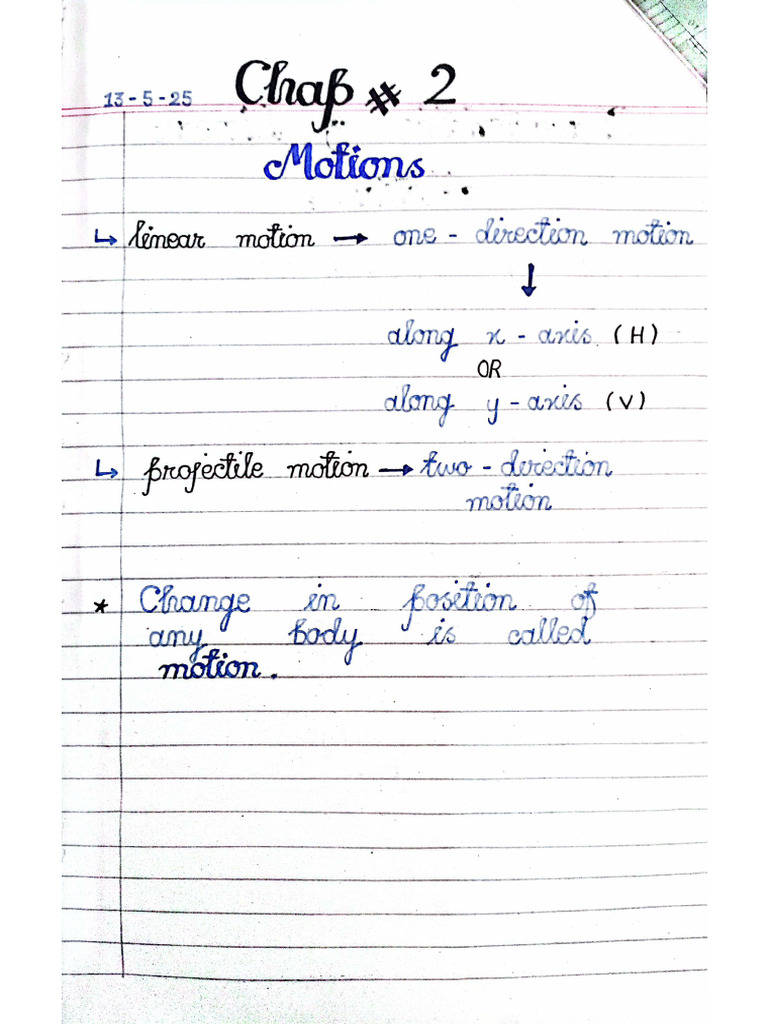 13-5-25 Chap # 2
Motions
↳ linear motion → one-direction motion
↓
along x-axis (H)
OR
along y-axis (V)
↳ projectile motion → two-direction
motion
* Change in position of
any body is called
motion.